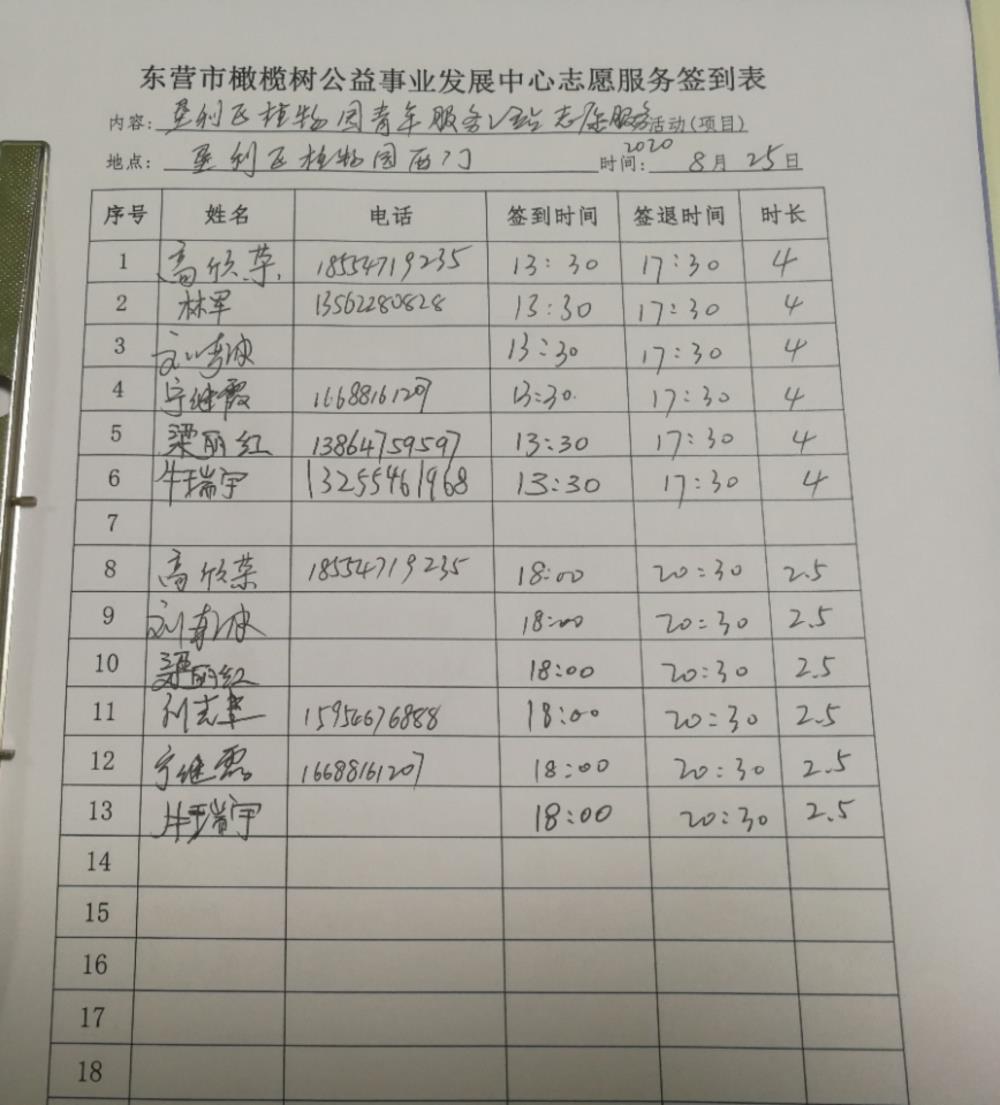 东营市橄榄树公益事业发展中心志愿服务签到表
内容: 垦利区植物园青年服务V站志愿服务活动(项目)
地点: 垦利区植物园西门 时间: 2020 8月25日
序号 姓名 电话 签到时间 签退时间 时长
1 高欣荣 18554719235 13:30 17:30 4
2 林军 13562280828 13:30 17:30 4
3 13:30 17:30 4
4 宁继霞 16688161207 13:30 17:30 4
5 梁丽红 13864759597 13:30 17:30 4
6 牛瑞宇 13255461968 13:30 17:30 4
7
8 高欣荣 18554719235 18:00 20:30 2.5
9 18:00 20:30 2.5
10 梁丽红 18:00 20:30 2.5
11 15954676888 18:00 20:30 2.5
12 宁继霞 16688161207 18:00 20:30 2.5
13 牛瑞宇 18:00 20:30 2.5
14
15
16
17
18